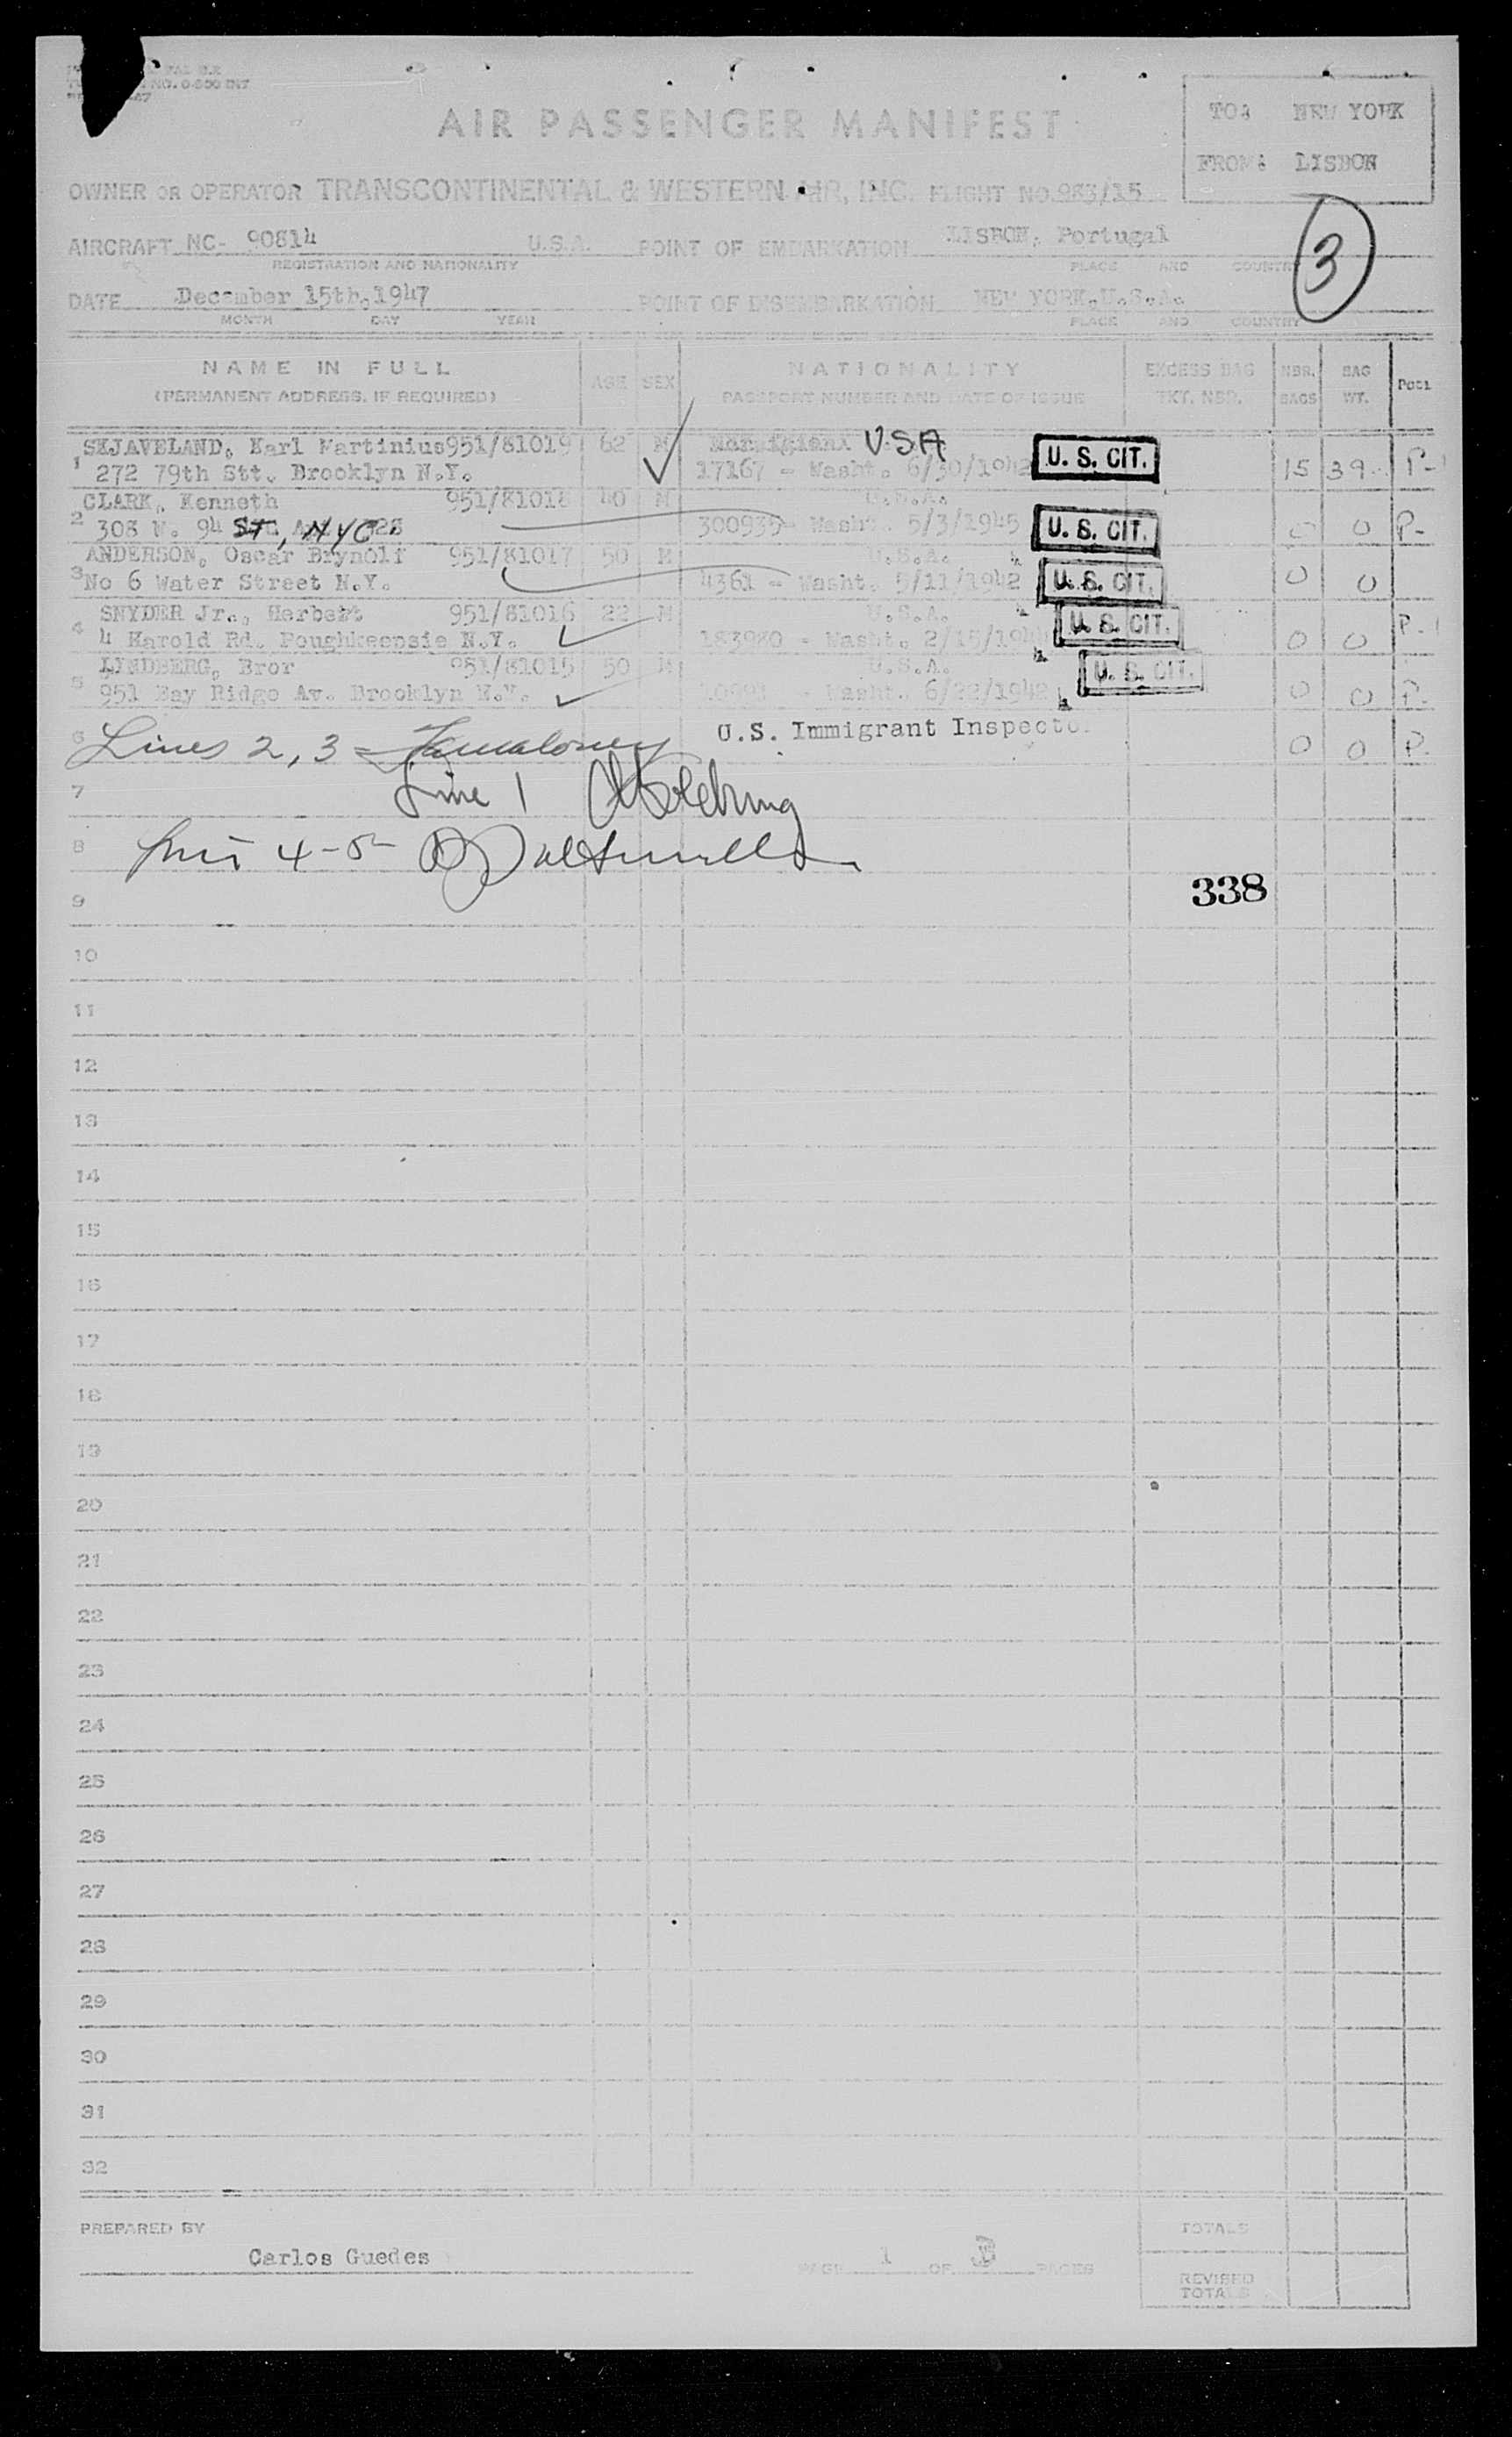 NO. 0-800 INT
AIR PASSENGER MANIFEST
TO: NEW YORK
FROM: LISBON
OWNER OR OPERATOR TRANSCONTINENTAL & WESTERN AIR, INC. FLIGHT NO. 983/15
AIRCRAFT NC- 90814 U.S.A. POINT OF EMBARKATION LISBON, Portugal
REGISTRATION AND NATIONALITY PLACE AND COUNTRY
3
DATE December 15th,1947 POINT OF DISEMBARKATION NEW YORK,U.S.A.
MONTH DAY YEAR PLACE AND COUNTRY
NAME IN FULL AGE SEX NATIONALITY EXCESS BAG NBR. BAG Pcti
(PERMANENT ADDRESS, IF REQUIRED) PASSPORT NUMBER AND DATE OF ISSUE TKT. NBR. BAGS WT.
SKJAVELAND, Karl Martinius 951/81019 62 M USA
1 272 79th Stt. Brooklyn N.Y. 17167 - Washt. 6/30/1942 U. S. CIT. 15 39 P-
CLARK, Kenneth 951/81018 40 M U.S.A.
2 308 W. 94 ST, NYC 300935- Washt. 5/3/1945 U. S. CIT. 0 0 P-
ANDERSON, Oscar Brynolf 951/81017 50 M U.S.A.
3 No 6 Water Street N.Y. 4361 - Washt. 5/11/1942 U. S. CIT. 0 0
SNYDER Jr., Herbert 951/81016 22 M U.S.A.
4 4 Harold Rd. Poughkeepsie N.Y. 183980 - Washt. 2/15/194 U. S. CIT. 0 0 P-
LINDBERG, Bror 951/81015 50 M U.S.A.
5 951 Bay Ridge Av. Brooklyn N.Y. - Washt. 6/22/1942 U. S. CIT. 0 0 P-
6 Lines 2, 3 U.S. Immigrant Inspector 0 0 P.
7 Line 1
8 4-5
9 338
10
11
12
13
14
15
16
17
18
19
20
21
22
23
24
25
26
27
28
29
30
31
32
PREPARED BY TOTALS
Carlos Guedes PAGE 1 OF PAGES
REVISED
TOTALS